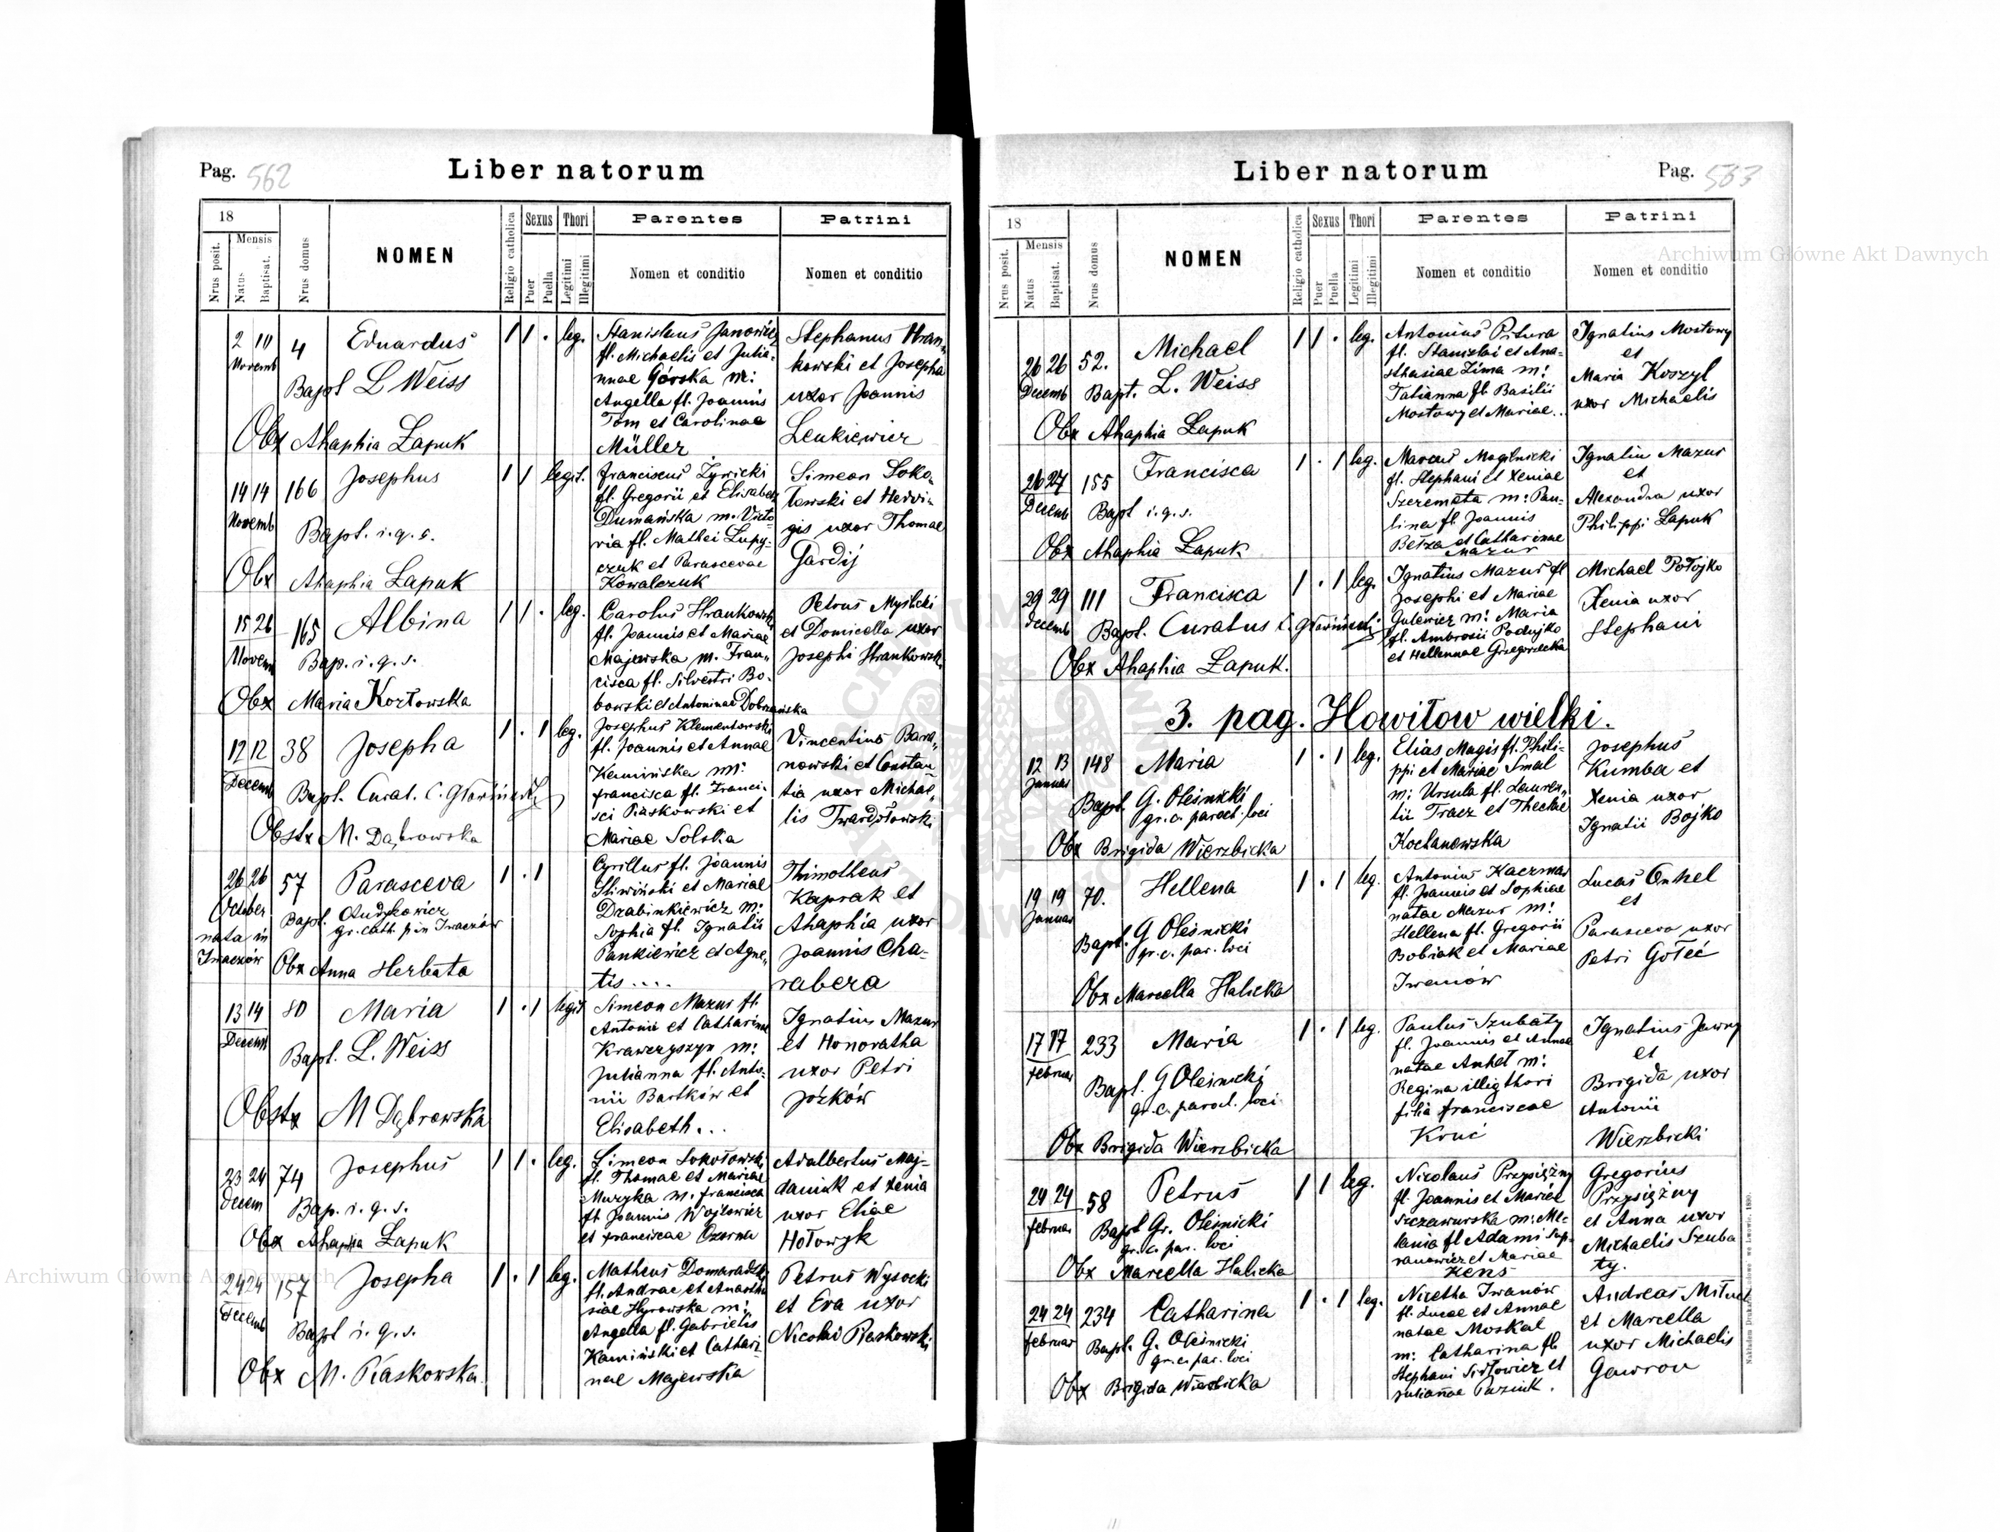 Pag. 562
Liber natorum
18
Nrus posit.
Mensis
Natus
Baptisat.
Nrus domus
NOMEN
Religio catholica
Sexus
Puer
Puella
Thori
Legitimi
Illegitimi
Parentes
Nomen et conditio
Patrini
Nomen et conditio
2 10 4 Eduardus 1 1 . leg.
Novemb
Bapt L Weiss
Obx Ahaphia Łapuk
Stanislaus Janowicz
fl. Michaelis et Julia-
nnae Górska m:
Angella fl. Joannis
Tom et Carolinae
Müller
Stephanus Hran-
kowski et Josepha
uxor Joannis
Leukiewicz
14 14 166 Josephus 1 1 legit.
Novemb
Bapt. i. q. s.
Obx Ahaphia Łapuk
Franciscus Żywicki
fl. Gregorii et Elisabeth
Dumańska m. Victo-
ria fl. Mathei Łupy-
czuk et Parascevae
Kowalczuk
Simeon Soko-
łowski et Hedvi-
gis uxor Thomae
Gardij
15 26 165 Albina 1 1 . leg.
Novem
Bap. i. q. s.
Obx Maria Kozłowska
Carolus Hrankowski
fl. Joannis et Mariae
Majewska m. Fran-
cisca fl. Silvestri Bo-
bowski et Antoninae Dobrzańska
Petrus Myślicki
et Domicella uxor
Josephi Hrankowski
12 12 38 Josepha 1 . 1 leg.
Decemb
Bapt. Curat. C. Głowiński
Obstx M. Dąbrowska
Josephus Klementowski
fl. Joannis et Annae
Kamińska m:
Francisca fl. Franci-
sci Piaskowski et
Mariae Solska
Vincentius Bara-
nowski et Constan-
tia uxor Michae-
lis Twardowski
26 26 57 Parasceva 1 . 1
October
nata in
Iwaczów
Bapt.
gr. cath. p in Iwaczów
Obx Anna Herbata
Cyrillus fl. Joannis
Śliwiński et Mariae
Drabinkiewicz m:
Sophia fl. Ignatii
Pankiewicz et Agne-
tis ....
Thimotheus
Kaprak et
Ahaphia uxor
Joannis Cha-
rabera
13 14 80 Maria 1 . 1 legit
Decemb
Bapt. L. Weiss
Obstx M Dąbrowska
Simeon Mazur fl.
Antonii et Catharinae
Krawczyszyn m:
Julianna fl. Anto-
nii Bartków et
Elisabeth...
Ignatius Mazur
et Honoratha
uxor Petri
Józków
23 24 74 Josephus 1 1 . leg.
Decem
Bap. i. q. s.
Obx Ahapha Łapuk
Simeon Sokołowski
fl. Thomae et Mariae
Muzyka m. Francisca
fl. Joannis Wojtowicz
et Franciscae Czorna
Adalbertus Maj-
daniuk et Xenia
uxor Eliae
Hołowyk
24 24 157 Josepha 1 . 1 leg.
Decemb
Bapt i. q. s.
Obx M. Piaskowska.
Matheus Domaradzki
fl. Andrae et Anasta-
siae Hyrowska m:
Angella fl. Gabrielis
Kamiński et Cathari-
nae Majewska
Petrus Wysocki
et Eva uxor
Nicolai Piaskowski
Liber natorum
Pag. 563
18
Nrus posit.
Mensis
Natus
Baptisat.
Nrus domus
NOMEN
Religio catholica
Sexus
Puer
Puella
Thori
Legitimi
Illegitimi
Parentes
Nomen et conditio
Patrini
Nomen et conditio
26 26 52. Michael 1 1 . leg.
Decemb
Bapt. L. Weiss
Obx Ahaphia Łapuk
Antonius Pitura
fl. Stanislai et Ana-
sthasiae Zima m:
Tatianna fl. Basilii
Mostowy et Mariae..
Ignatius Mostowy
et
Maria Koszyl
uxor Michaelis
26 27 155 Francisca 1 . 1 leg.
Decemb
Bapt i. q. s.
Obx Ahaphia Łapuk
Marcus Mogilnicki
fl. Stephani et Xeniae
Szeremeta m: Pau-
lina fl. Joannis
Bełza et Catharinae
Mazur
Ignatiu Mazur
et
Alexandra uxor
Philippi Łapuk
29 29 111 Francisca 1 . 1 leg.
Decemb
Bapt. Curatus C. Głowiński
Obx Ahaphia Łapuk.
Ignatius Mazur fl
Josephi et Mariae
Gulewicz m: Maria
fl. Ambrosii Podujko
et Hellennae Grzegorecka
Michael Połojko
Xenia uxor
Stephani
3. pag. Howiłow wielki.
12 13 148 Maria 1 . 1 leg.
Januar
Bapt. G. Oleśnicki
gr. c. paroch. loci
Obx Brigida Wierzbicka
Elias Magis fl. Phili-
ppi et Mariae Smal
m: Ursula fl. Lauren-
tii Tracz et Theclae
Kochanowska
Josephus
Kumba et
Xenia uxor
Ignatii Bojko
19 19 70. Hellena 1 . 1 leg.
Januar
Bapt. G Oleśnicki
gr. c. par. loci
Obx Marcella Halicka
Antonius Kaczmar
fl. Joannis et Sophiae
natae Mazur m:
Hellena fl. Gregorii
Bobiak et Mariae
Iwanów
Lucas Onkel
et
Parasceva uxor
Petri Gołeć
17 17 233 Maria 1 . 1 leg.
Februar
Bapt. G Oleśnicki
gr. c. paroch. loci.
Obx Brigida Wierzbicka
Paulus Szubaty
fl. Joannis et Annae
natae Anhel m:
Regina illeg thori
filia Franciscae
Kruć
Ignatius Jawny
et
Brigida uxor
Antonii
Wierzbicki
24 24 58 Petrus 1 1 leg.
Februar
Bapt Gr. Oleśnicki
gr. c. par. loci
Obx Marcella Halicka
Nicolaus Przysiężny
fl. Joannis et Mariae
Szczawurska m: Me-
lania fl Adami Sap-
ranowicz et Mariae
Kens
Gregorius
Przysiężny
et Anna uxor
Michaelis Szuba
ty.
24 24 234 Catharina 1 . 1 leg.
Februar
Bapt. G. Oleśnicki
gr. c. par. loci
Obx Brigida Wierzbicka
Nicetha Iwanów
fl. Lucae et Annae
natae Moskal
m: Catharina fl.
Stephani Sidłowicz et
Juliannae Paziuk.
Andreas Miłuch
et Marcella
uxor Michaelis
Gawron
Nakładem Drukarni ludowej we Lwowie. 1890.
Archiwum Główne Akt Dawnych
Archiwum Główne Akt Dawnych